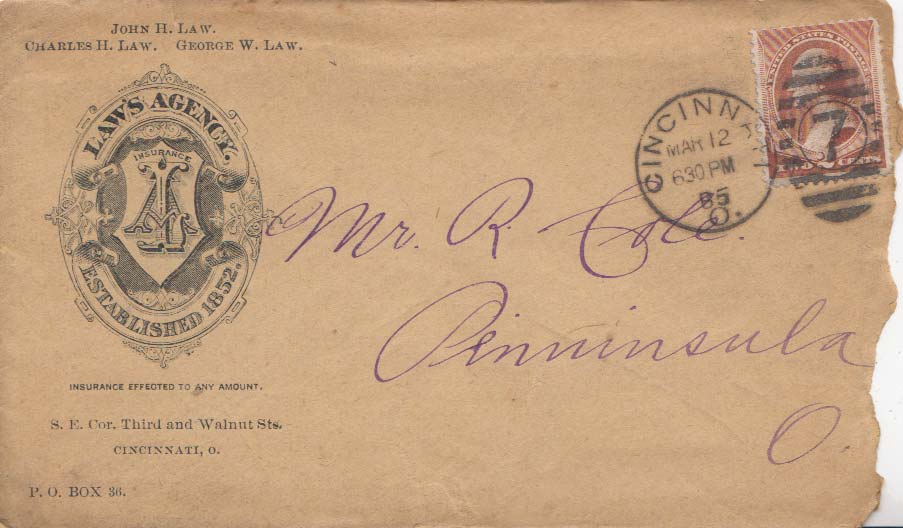 JOHN H. LAW.
CHARLES H. LAW. GEORGE W. LAW.
LAW'S AGENCY.
INSURANCE
ESTABLISHED 1852.
INSURANCE EFFECTED TO ANY AMOUNT.
S. E. Cor. Third and Walnut Sts.
CINCINNATI, O.
P. O. BOX 36.
UNITED STATES POSTAGE
7
MAR 12
630 PM
85
O.
Mr. R. Cole.
Penninsula
O.